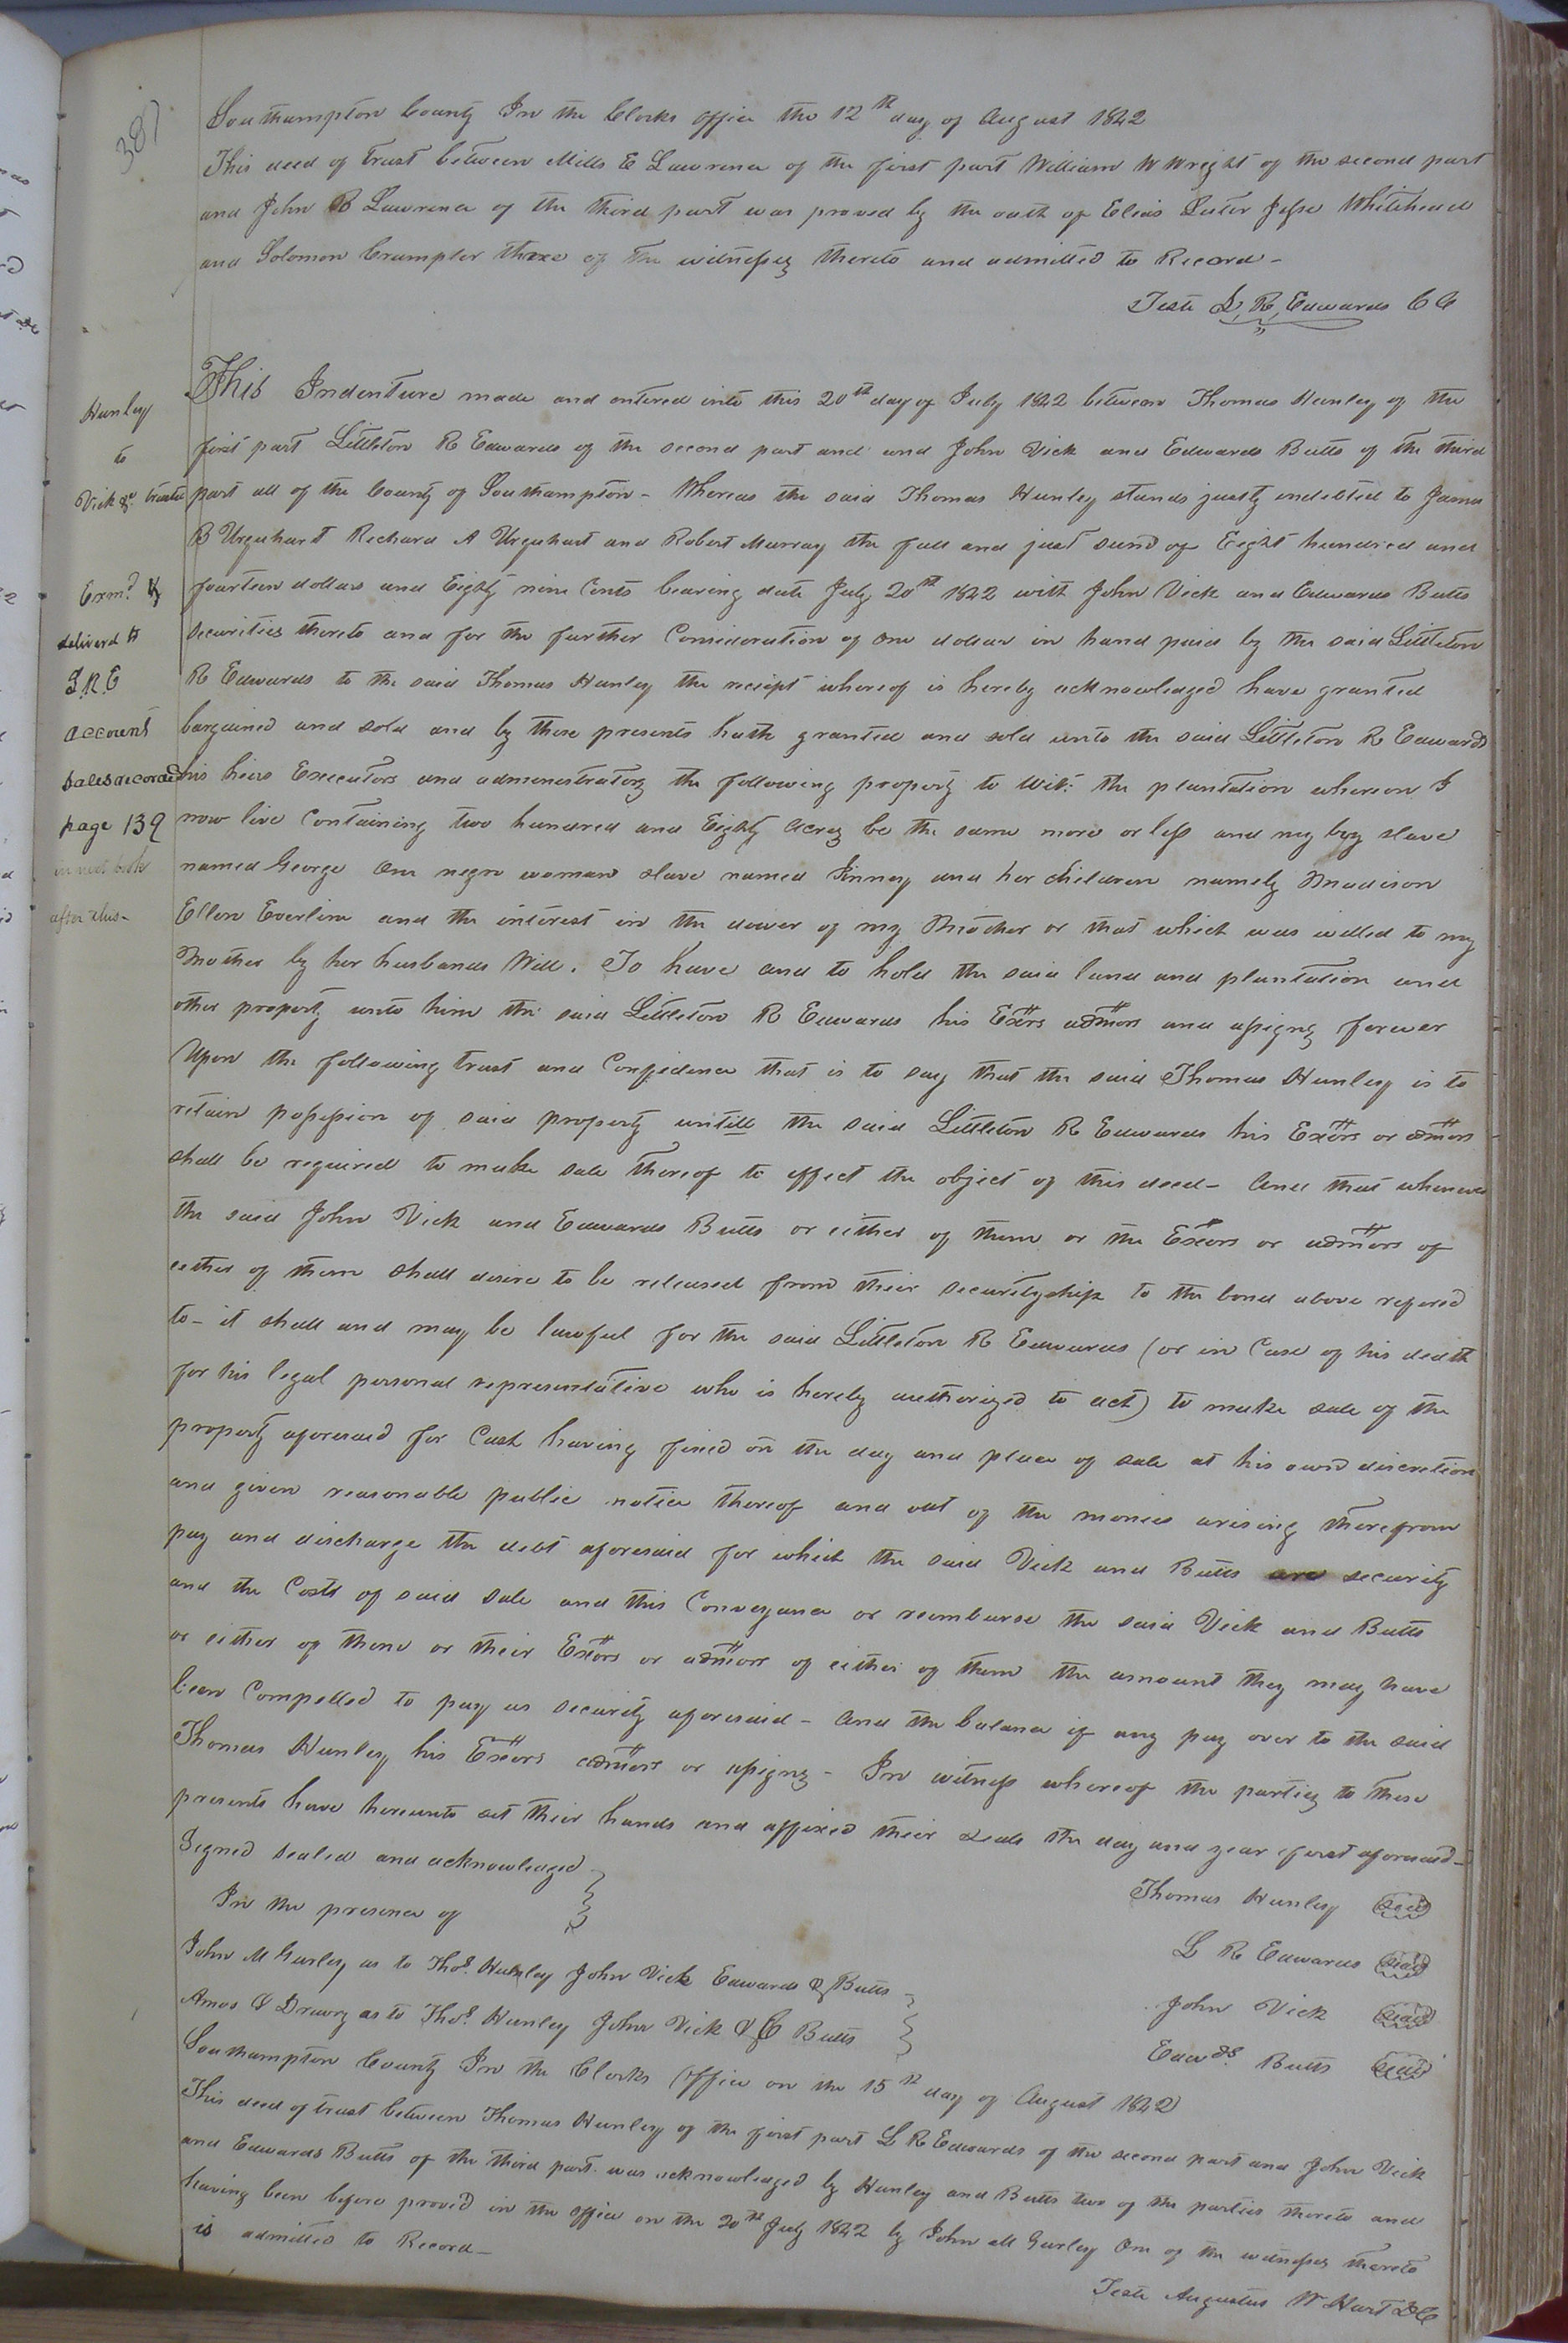 387
Southampton County In the Clerks office the 12th day of August 1842
This deed of trust between Mills E Lawrence of the first part William W Wright of the second part
and John B Lawrence of the third part was proved by the oath of Elias Lester Jesse Whitehead
and Solomon Crumpler three of the witnesses thereto and admitted to Record -
Teste L. R, Edwards CC
Hunley
to
Vick &c trustee
Exmd &
deliverd to
L.R.E
account
Sales recorded
page 139
in next book
after this -
This Indenture made and entered into this 20th day of July 1842 between Thomas Hunley of the
first part Littleton R Edwards of the second part and and John Vick and Edwards Butts of the third
part all of the County of Southampton - Whereas the said Thomas Hunley stands justly indebted to James
B Urquhart Richard A Urquhart and Robert Murray the full and just sum of Eight hundred and
fourteen dollars and Eighty nine Cents bearing date July 20th 1842 with John Vick and Edwards Butts
securities thereto and for the further Consideration of One dollar in hand paid by the said Littleton
R Edwards to the said Thomas Hunley the reciept whereof is hereby acknowledged have granted
bargained and sold and by these presents hath granted and sold unto the said Littleton R Edwards
his heirs Executors and administrators the following property to Wit: the plantation whereon I
now live Containing two hundred and Eighty Acres be the same more or less and my boy slave
named George One negro woman slave named Jinney and her children namely Madison
Ellen Everline and the interest in the dower of my Mother or that which was willed to my
Mother by her husbands Will. To have and to hold the said land and plantation and
other property unto him the said Littleton R Edwards his Exors admors and assigns forever
Upon the following trust and Confidence that is to say that the said Thomas Hunley is to
retain possession of said property untill the said Littleton R Edwards his Exors or admors
shall be required to make sale thereof to effect the object of this deed - And that whenever
the said John Vick and Edwards Butts or either of them or the Exors or admors of
either of them shall desire to be released from their securityship to the bond above refered
to - it shall and may be lawful for the said Littleton R Edwards (or in Case of his death
for his legal personal representative who is hereby authorized to act) to make sale of the
property aforesaid for Cash having fixed on the day and place of sale at his own discretion
and given reasonable public notice thereof and out of the monies arising therefrom
pay and discharge the debt aforesaid for which the said Vick and Butts are security
and the Costs of said sale and this Conveyance or reemburse the said Vick and Butts
or either of them or their Exors or admors of either of them the amount they may have
been Compelled to pay as security aforesaid - And the balance if any pay over to the said
Thomas Hunley his Exors admors or assigns - In witness whereof the parties to these
presents have hereunto set their hands and affixed their seals the day and year first aforesaid -
Signed Sealed and acknowledged
In the presence of
Thomas Hunley Seal
L R Edwards Seal
John Vick Seal
Edwds Butts Seal
John M Gurley as to Thos. Hunley John Vick Edwards & Butts
Amos & Drewry as to Thos. Hunley John Vick & E Butts
Southampton County In the Clerks Office on the 15th day of August 1842
This deed of trust between Thomas Hunley of the first part L R Edwards of the second part and John Vick
and Edwards Butts of the third part was acknowledged by Hunley and Butts two of the parties thereto and
having been before proved in the office on the 20th July 1842 by John M Gurley One of the witnesses thereto
is admitted to Record -
Teste Augustus W Hart DC